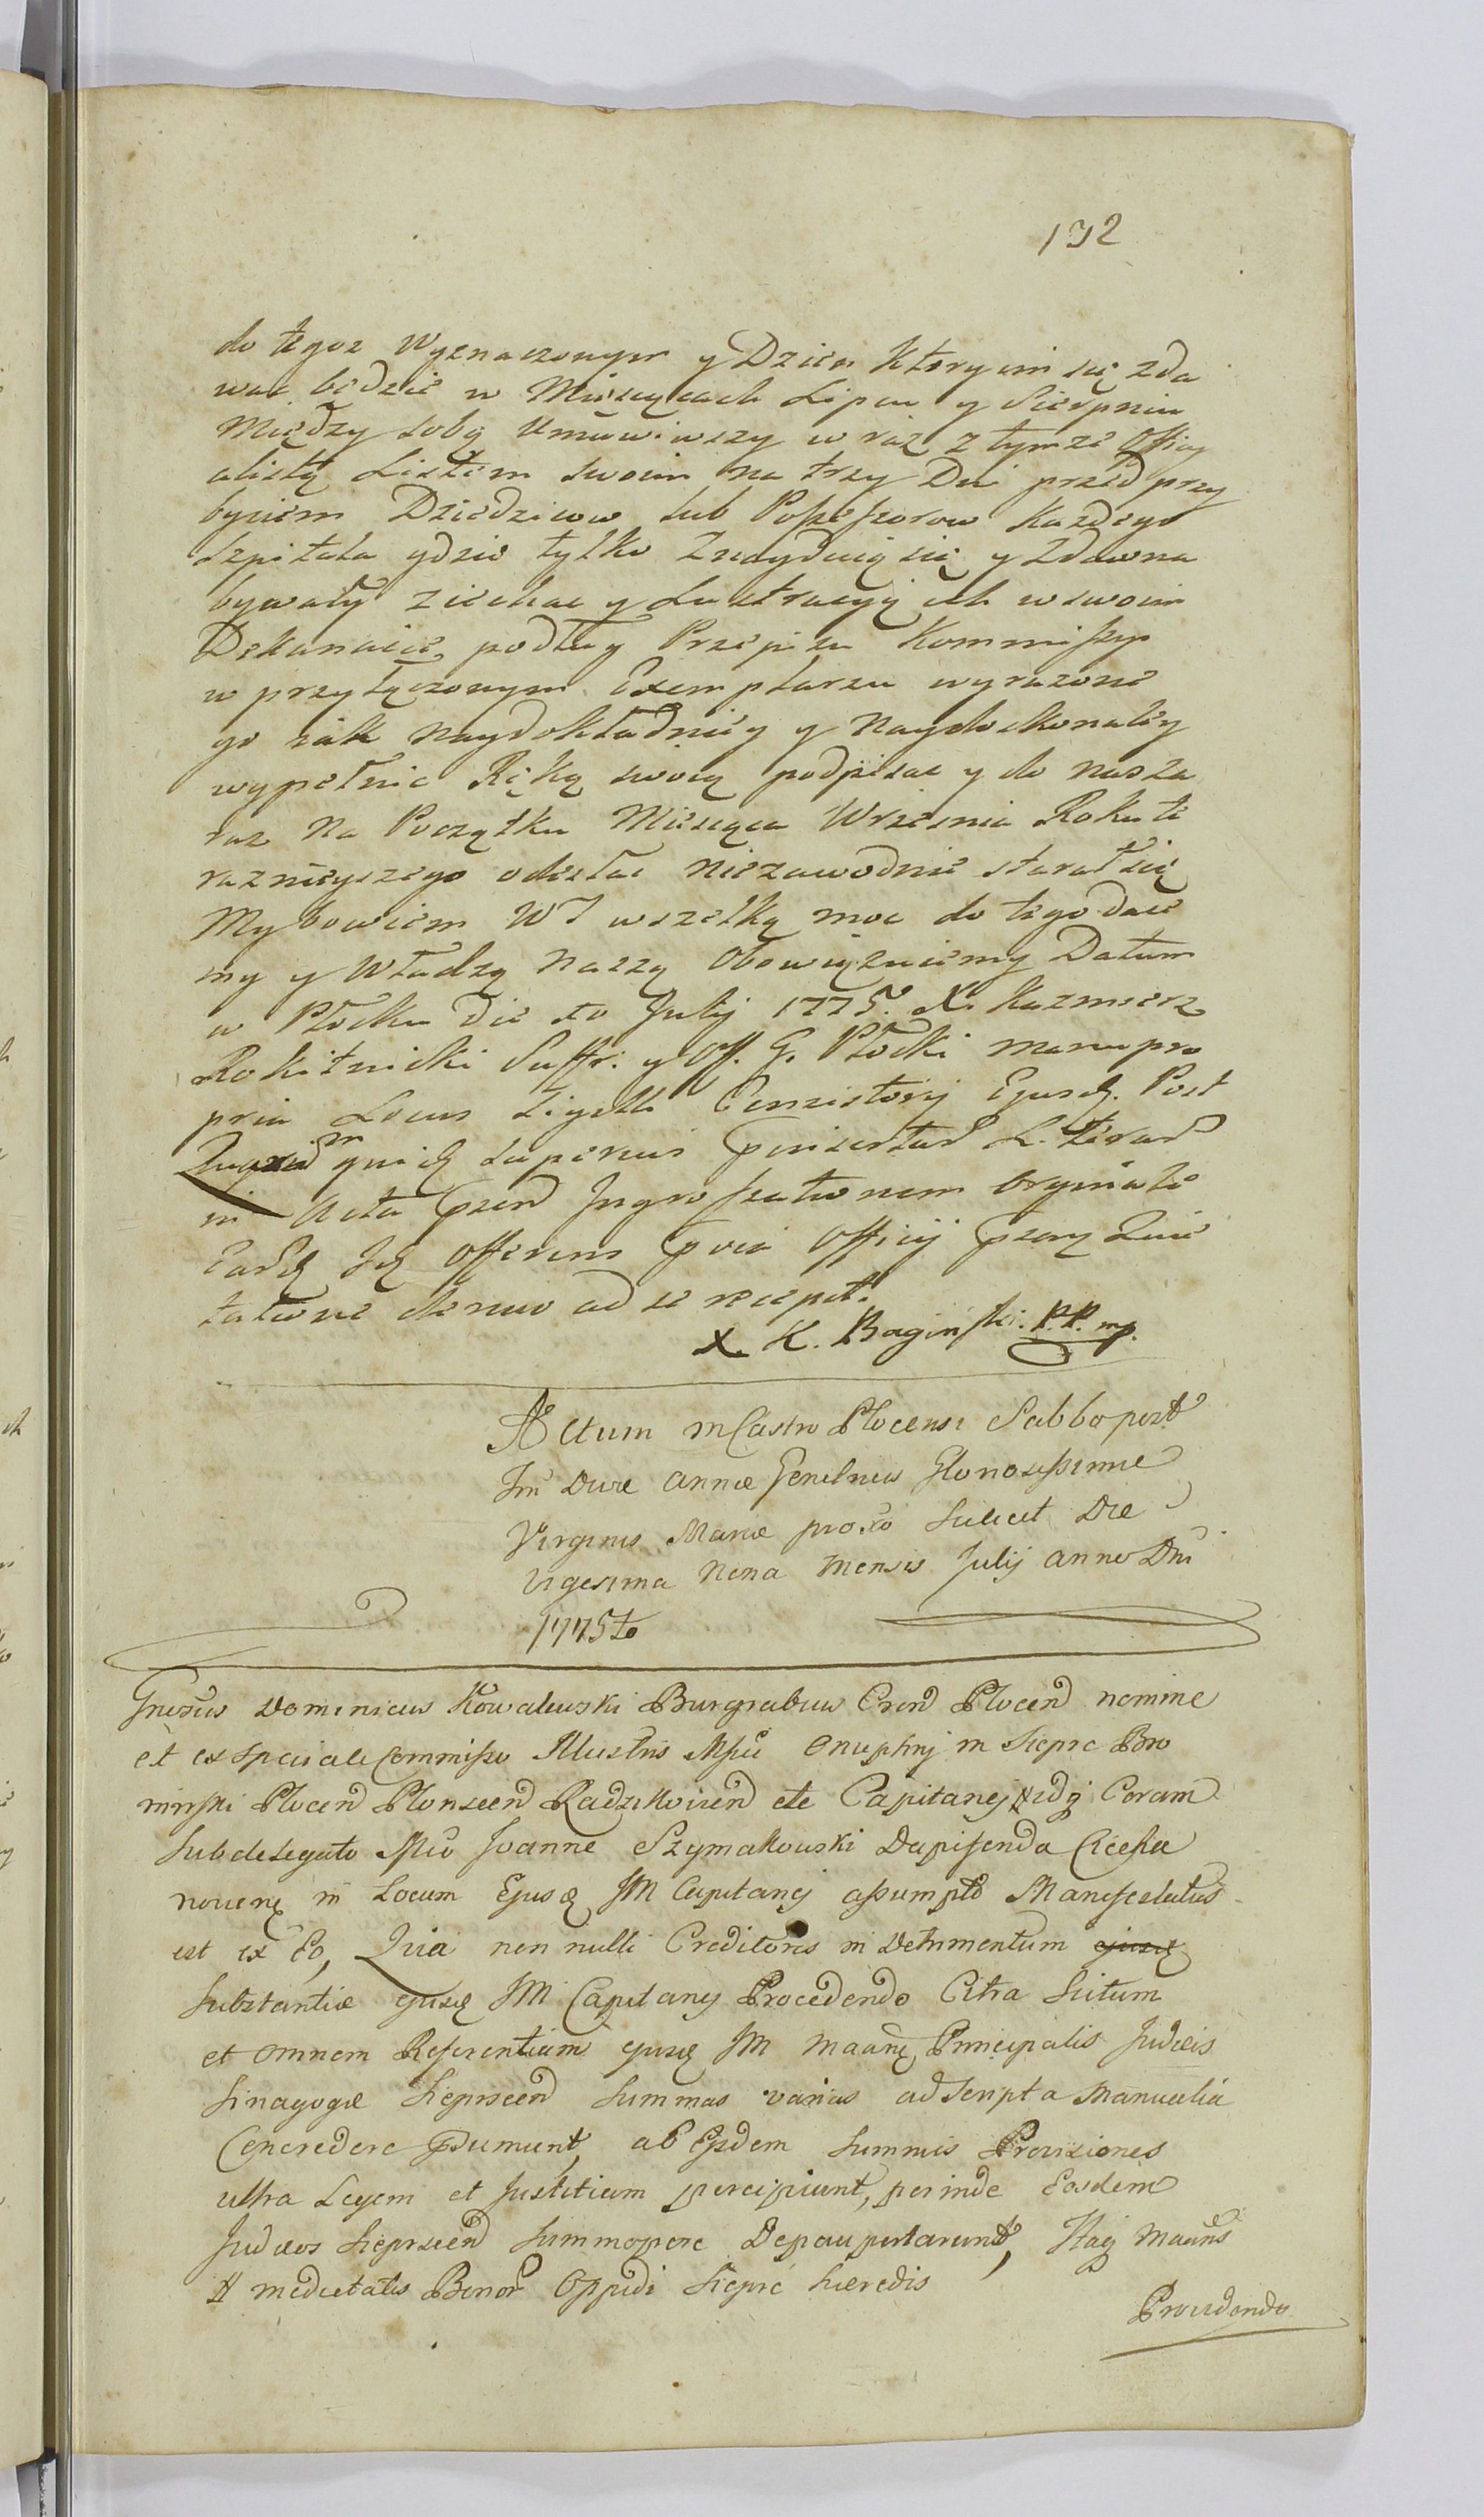 192
do tegoz Wyznaczonym y Dzien ktorym się zda
wac będzie w Miesącach Lipcu y Sierpniu
Między sobą Umowiwszy w raz z tymze Offiey
alistą Listem swoim na trzy Dni przed przy
byciem Dziedzicow lub Possessorow Kazdego
Szpitala gdzie tylko Znayduią się y Zdawna
bywały ziechac y Lustracyą ich w swoim
Dekanacie podług Przepisu Kommissyi
w przyłączonym Exemplarzu wyrazone
go iak naydokładniey y naydoskonaley
wypełnic Ręką swoią podpisac y do nas za
raz na Początku Miesiąca Wrzesnia Roku te
raznieyszego odesłac niezawodnie starał się
My bowiem WJ wszelką moc do tego daie
my y Władzą naszą Obowiązuiemy Datum
w Płocku die 10 Julij 1775. X. Kazmierz
Rokitnicki Suffr. y Off. G. Płocki manu pro
pria Locus Sigilli Consistorij Ejusd. Post
quar supenius insertar Lrar
in Acta Ingrossationem originale
Easdem Id Offerens Officij Quie
tatione denuo ad se recepit.
X. K. Baginski. P.P. mp.
Actum in Castro Plocensi Sabbo post
Fm Divæ Annæ Genitricis Gloriosissimæ
Virginis Mariæ proxo Scilicet Die
Vigesima Nona Mensis Julij Anno Dni
1775to
Gnrosus Dominicus Kowalewski Burgrabius Cren Plocen nomine
et ex speciali commisso Illustris Mfci Onuphrij in Sieprc Bro
minski Plocen Plonscen Radzikovien etc Capitanej Coram
Subdelegato Mfco Joanne Szymakowski Dapiferida Ciecha
noviens in Locum Ejusd JM Capitanej assumpto Manifestatus
est ex Eo, Quia non nulli Creditores in Detrimentum ejusd
Substantiæ ejusd JM Capitanej Procedendo Citra Scitum
et omnem Referentiam ejusd JM Principalis Judicis
Sinagogæ Sieprscen Summas varias ad Scripta Manualia
Concredere Psumunt, ab Ejsdem Summis Provisiones
ultra Legem et Justitiam percipiunt, perinde Eosdem
Judæos Sieprscen Summopere Depaupertarunt, Itaq
medietatis Bonor Oppidi Sieprc hæredis
Providendo